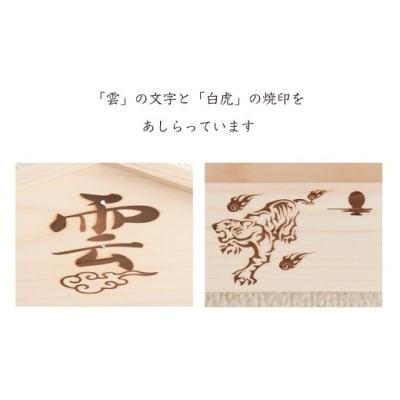 「雲」の文字と「白虎」の焼印を
あしらっています
雲